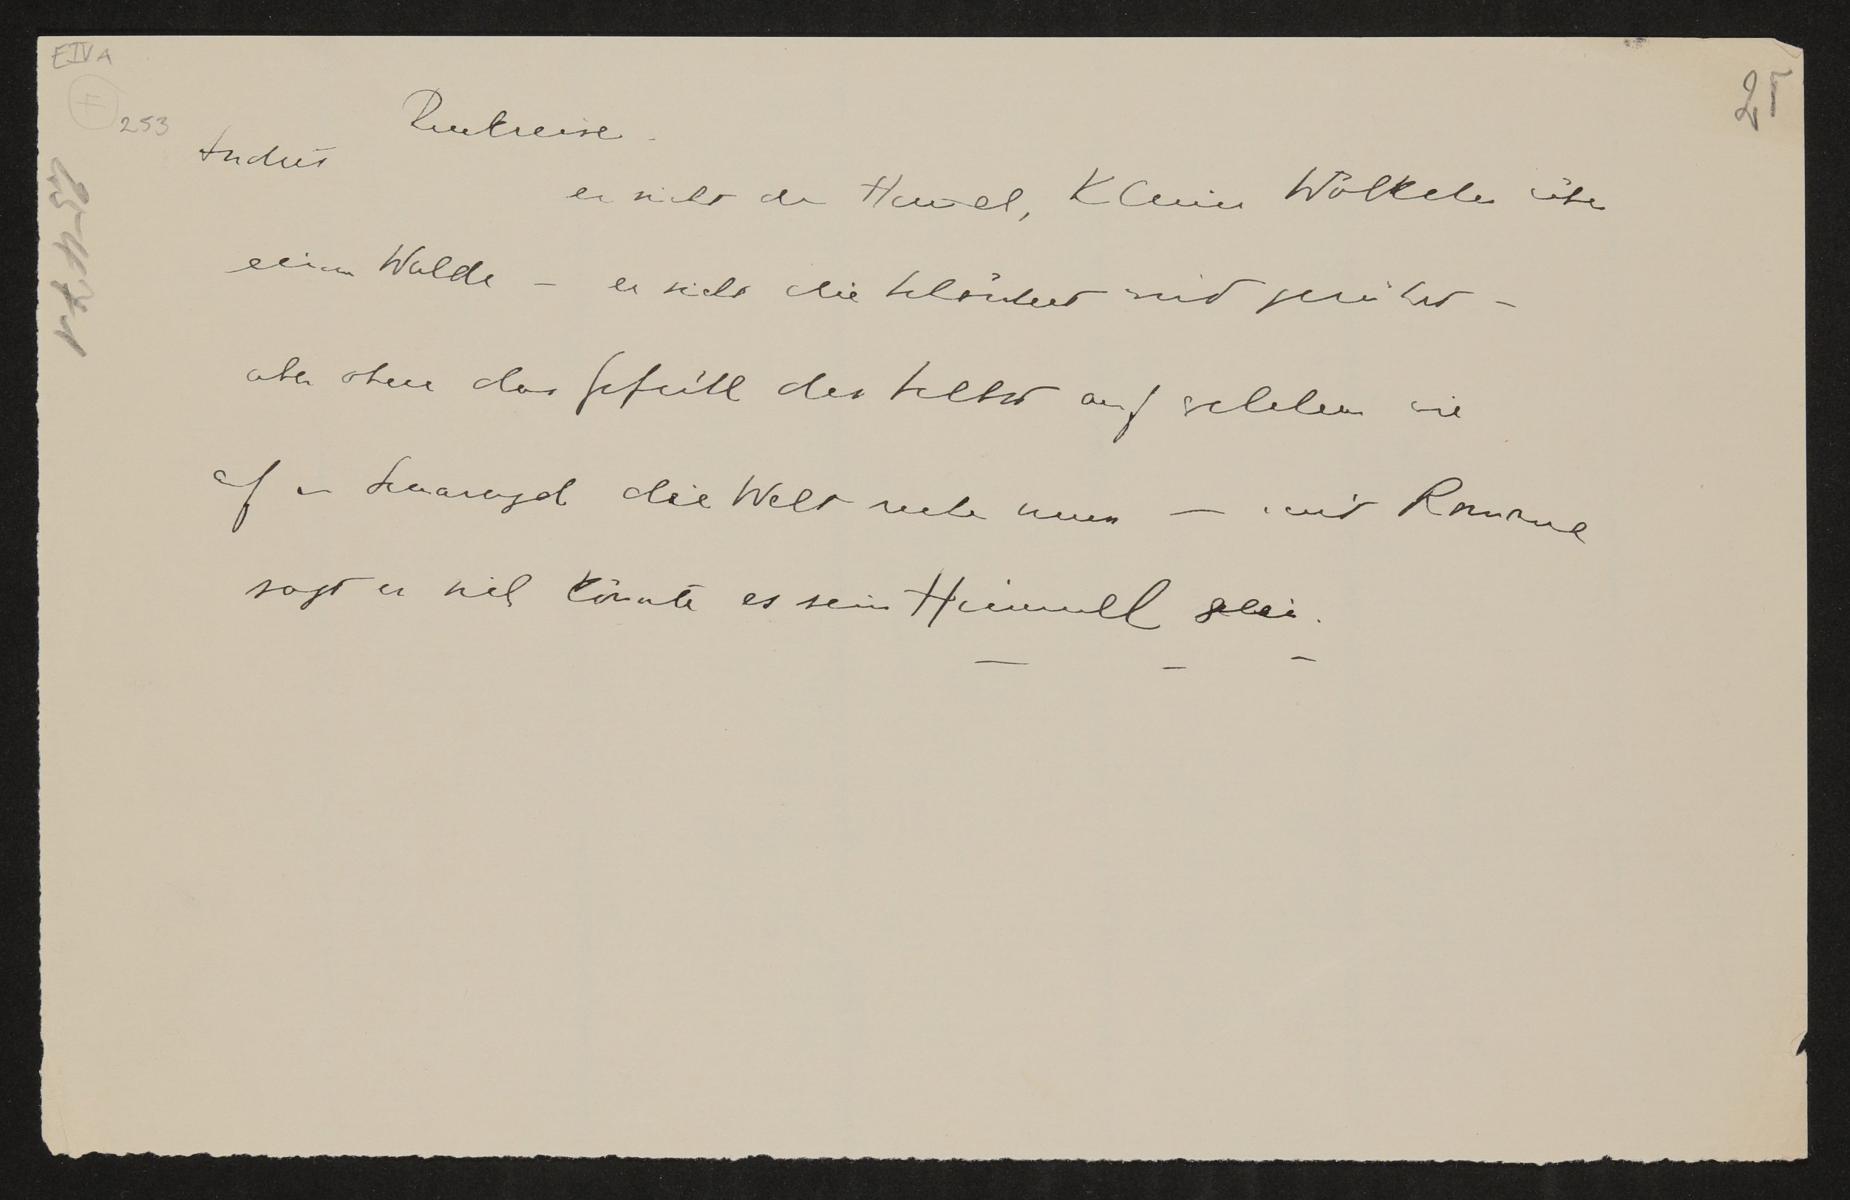 E IV A
253
25
Rückreise.
Andres
er sieht den Himmel, kleine Wölkchen über
einem Walde – er sieht die Schönheit wird gerührt –
aber ohne das Gefühl des Selbst auf welchem wie
auf Smaragd die Welt ruhen muss – mit Romana
sagt er sich könnte es sein Himmel sein.